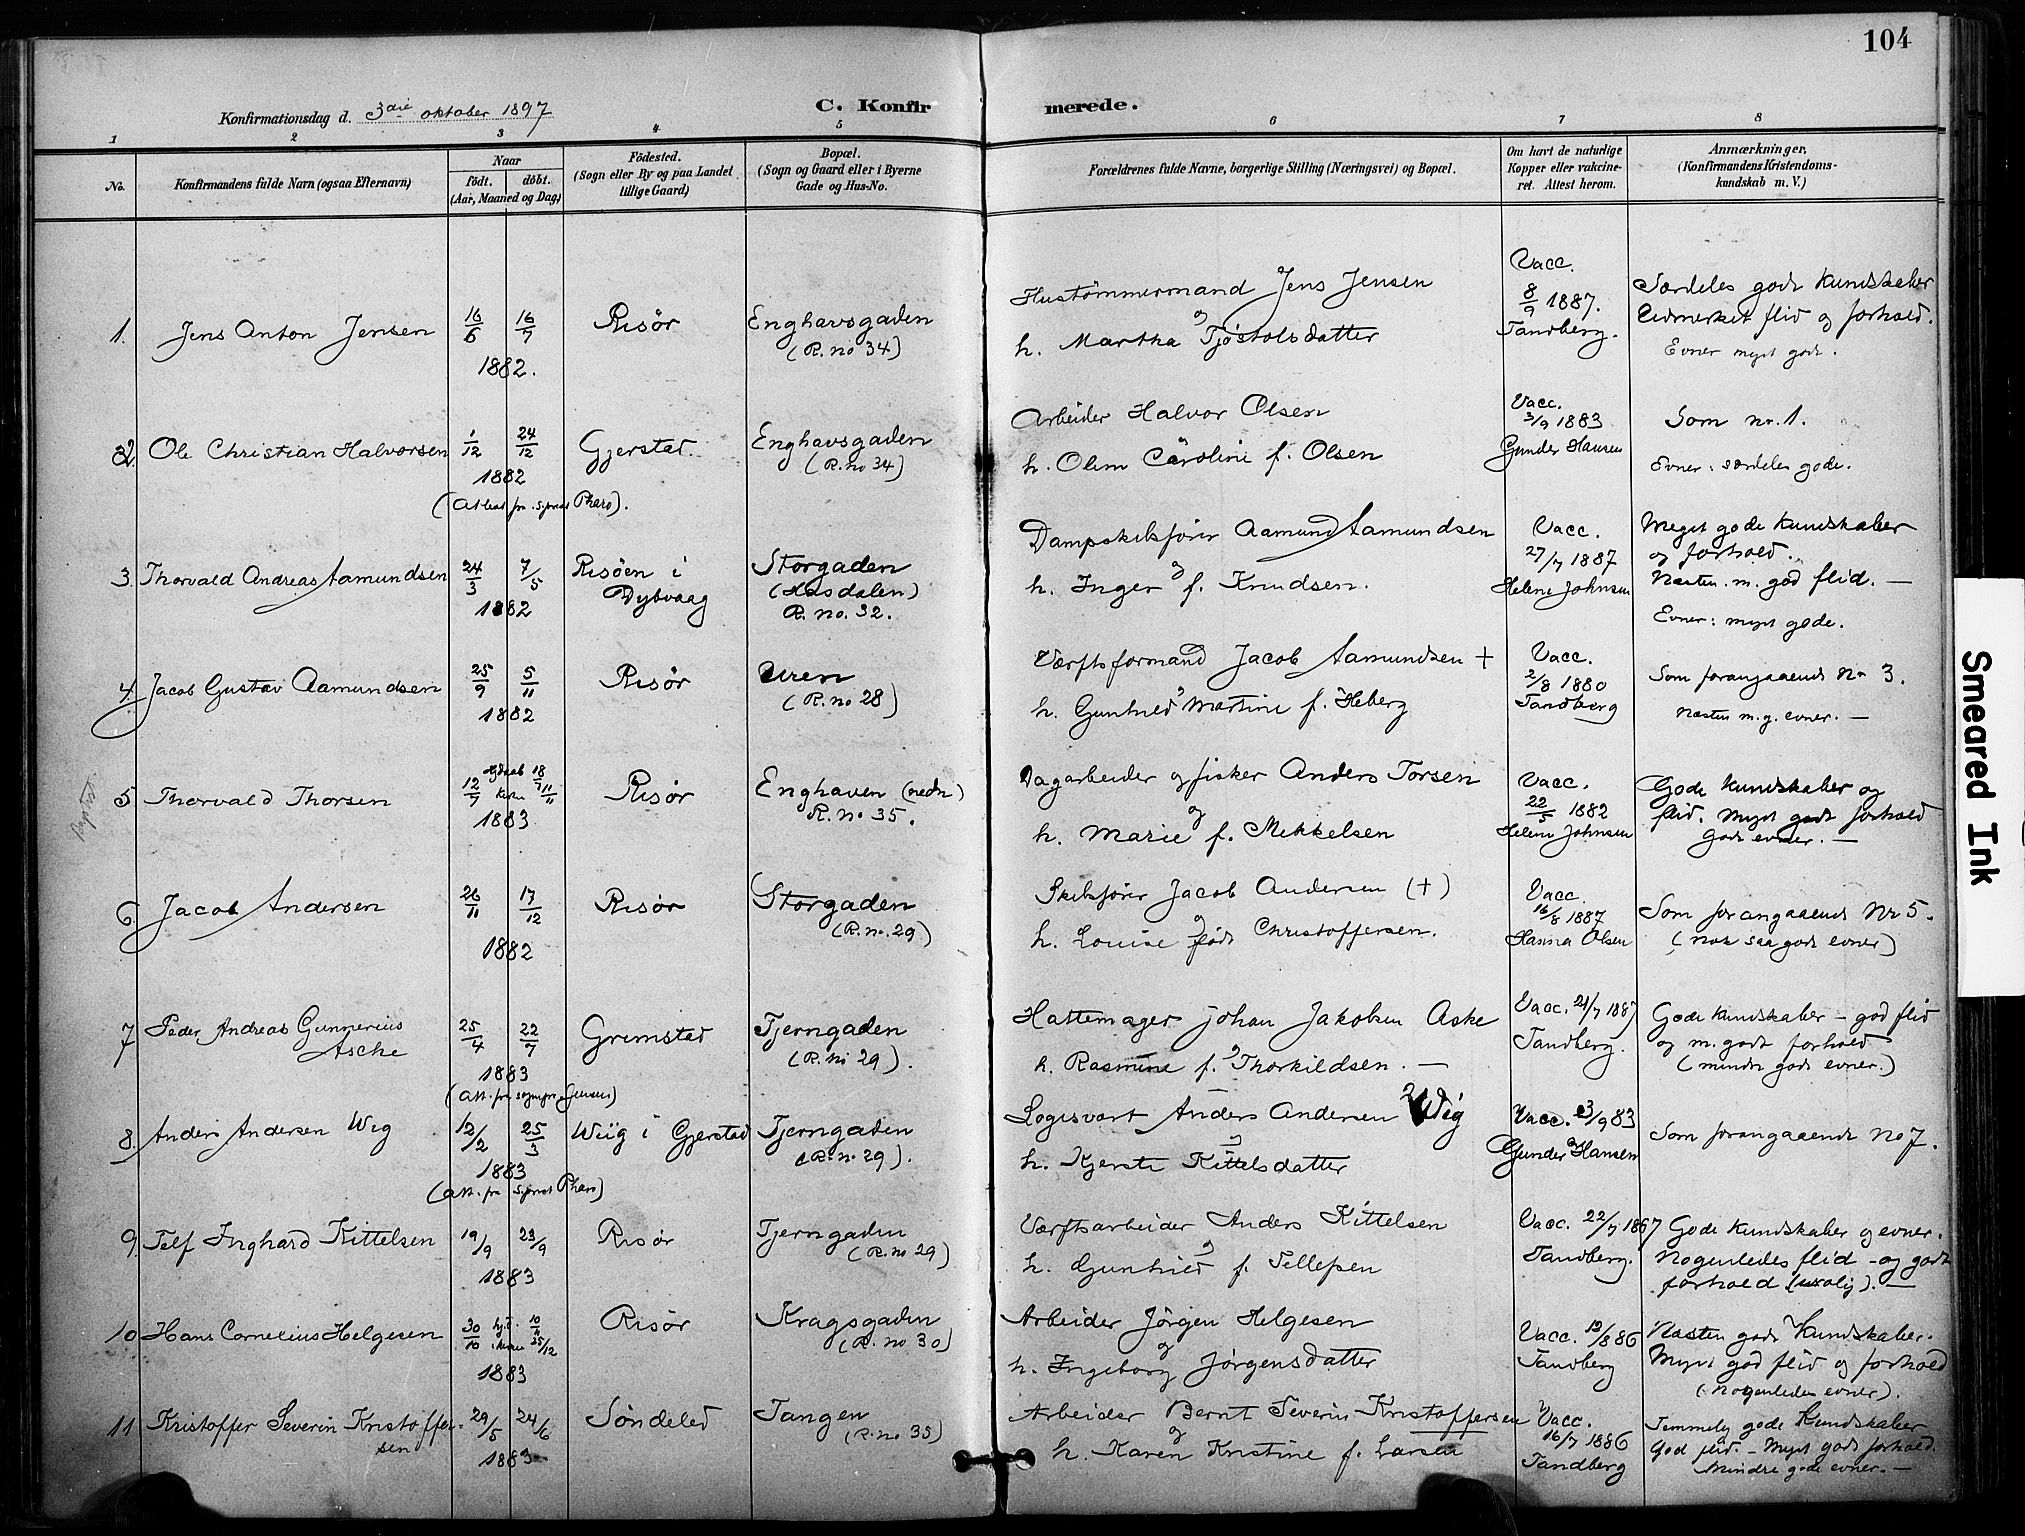 104
Konfirmationsdag d. 3die oktober 1897
C. Konfirmerede.
1 2 3 4 5 6 7 8
No.
Konfirmandens fulde Navn (ogsaa Efternavn)
Naar
født. døbt.
(Aar, Maaned og Dag)
Födested.
(Sogn eller By og paa Landet
tillige Gaard)
Bopæl.
(Sogn og Gaard eller i Byerne
Gade og Hus-No.
Forældrenes fulde Navne, borgerlige Stilling (Næringsvei) og Bopæl.
Om havt de naturlige
Kopper eller vakcine-
ret. Attest herom.
Anmærkninger.
(Konfirmandens Kristendoms-
kundskab m. V.)
1. Jens Anton Jensen
16/6 16/7
1882.
Risør
Enghavsgaden
(R. no 34)
Hustømmermand Jens Jensen
og
h. Martha Tjøstolsdatter
Vacc.
8/9 1887.
Tandberg.
Særdeles gode kundskaber
Udmerket flid og forhold.
Evner myst gode.
2. Ole Christian Halvorsen
1/12 24/12
1882
(Attest fra Pharo).
Gjerstad.
Enghavsgaden
(R. no 34)
Arbeider Halvor Olsen
h. Oline Caroline f. Olsen
Vacc.
3/9 1883
Gunder Hansen
Som nr. 1.
Evner: særdeles gode.
3. Thorvald Andreas Aamundsen
24/3 7/5
1882
Risøen i
Dybvaag
Storgaden
(Hasdalen)
R. no. 32.
Dampskibsfører Aamund Aamundsen
og
h. Inger f. Knudsen.
Vacc.
27/7 1887
Helene Johnsen
Meget gode kundskaber
og forhold.
Næsten m. god flid. —
Evner: myst gode.
4. Jacob Gustav Aamundsen
25/9 5/11
1882
Risør
Uren
(R. no 28)
Værftsformand Jacob Aamundsen +
h. Gunhild Martine f. Heberg
Vacc.
2/8 1880
Tandberg
Som foregaaende No 3.
Næsten m. g. evner. —
5 Thorvald Thorsen
12/7 18/7
kirke 11/11
1883
Risør
Enghaven (nedn)
R. No 35.
Dagarbeider og fisker Anders Torsen
og
h. Marie f. Mekkelsen
Vacc.
22/5 1882
Helene Johnsen
Gode kundskaber og
flid. Myst godt forhold
gode evner. —
6. Jacob Andersen
26/11 17/12
1882
Risør
Storgaden
(R. no. 29)
Skibsfører Jacob Andersen (+)
og
h. Louise født Christoffersen.
Vacc.
16/8 1887
Hanna Olsen
Som foregaaende Nr 5.
(nok saa gode evner)
7 Peder Andreas Gunnerius
Asche
25/4 22/7
1883
Grimstad
Tjerngaden
(R. no 29).
Hattemager Johan Jakobsen Aske
og
h. Rasmine f. Thorkildsen. —
Vacc. 21/7 1887
Tandberg.
Gode kundskaber - god flid
og m. godt forhold
(mindre gode evner.)
8. Anders Andersen Wig
12/2 25/3
1883
Wiig i Gjerstad
Tjerngaden
(R. no. 29).
Logisvært Anders Andersen Wig
og
h. Kjersti Kittelsdatter
Vacc. 3/9 83
Gunder Hansen
Som foregaaende No 7.
9. Telf Inghard Kittelsen
19/9 23/9
1883
Risør
Tjerngaden
(R. no 29)
Værftsarbeider Anders Kittelsen
og
h. Gunhild f. Tellefsen
Vacc. 22/7 1867
Tandberg.
Gode kundskaber og evner.
Nogenledes flid - og godt
forhold (urolig). —
10 Hans Cornelius Helgesen
30/10 10/11
i kirken 25/12
1883
Risør
Kragsgaden
(R. no 30)
Arbeider Jörgen Helgesen
og
h. Ingeborg Jørgensdatter
Vacc. 13/8 86
Tandberg
Næsten gode Kundskaber.
Myst god flid og forhold
(Nogenledes evner).
11 Kristoffer Severin Kristoffer-
sen
29/5 24/6
1883
Søndeled
Tangen
(R. no 35)
Arbeider Bernt Severin Kristoffersen
og
h. Karen Kristine f. Larsen
Vacc.
16/7 1886
Tandberg
Temmelig gode Kundskaber
God flid. - Myst godt forhold.
Mindre gode evner. —
Smeared Ink